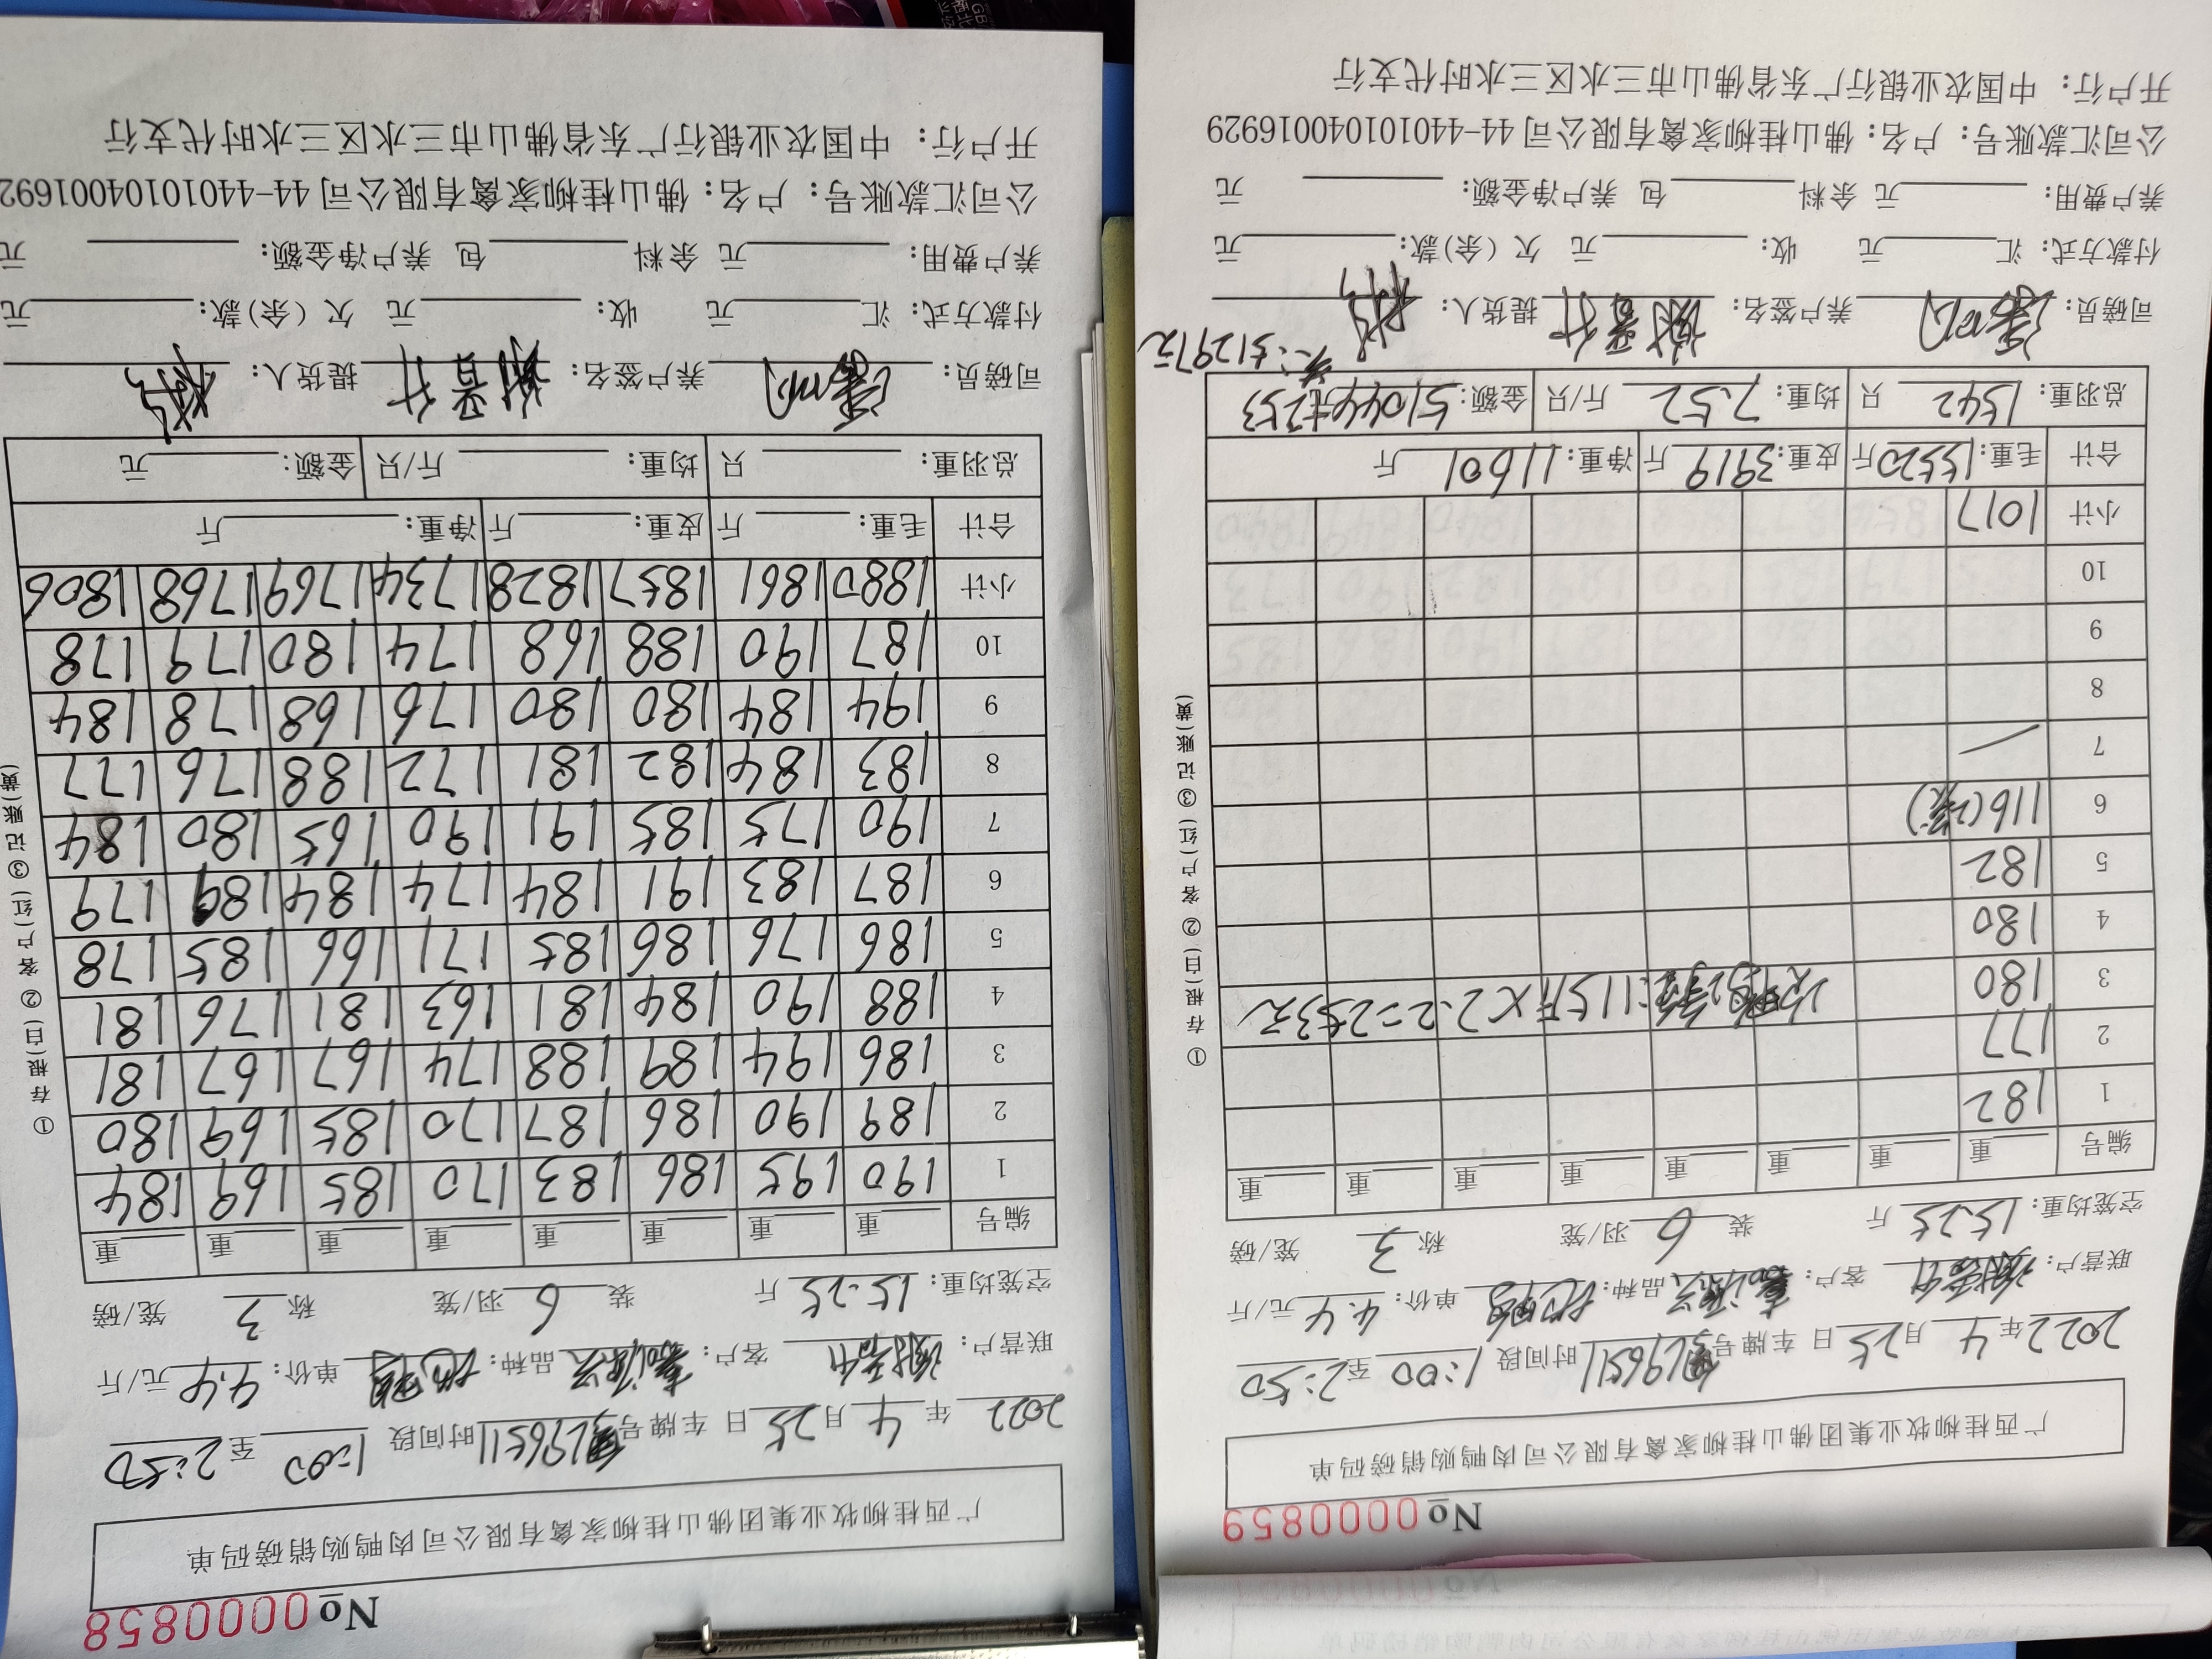 No 0000858
广西桂柳牧业集团佛山桂柳家禽有限公司肉鸭购销磅码单
2022 年 4 月 25 日 车牌号 时间段 1:00 至 2:50
联营户: 客户: 品种: 单价: 4.4 元/斤
空笼均重: 15.25 斤 装 6 羽/笼 称 3 笼/磅
编号 重 重 重 重 重 重 重 重
1 190 195 186 183 170 185 169 184
2 189 190 186 187 170 185 169 180
3 186 194 189 188 174 167 167 181
4 188 190 184 181 163 181 176 181
5 186 176 186 185 171 166 185 178
6 187 183 191 184 174 184 189 179
7 190 175 185 191 190 165 180 184
8 183 184 182 181 172 188 176 177
9 194 184 180 180 176 168 178 184
10 187 190 188 168 174 180 179 178
小计 1880 1861 1857 1828 1734 1769 1768 1806
合计 毛重: 斤 皮重: 斤 净重: 斤
总羽重: 只 均重: 斤/只 金额: 元
司磅员: 养户签名: 提货人:
付款方式: 汇 元 收: 元 欠(余)款: 元
养户费用: 元 余料 包 养户净金额: 元
公司汇款账号: 户名: 佛山桂柳家禽有限公司 44-4401010400169
开户行: 中国农业银行广东省佛山市三水区三水时代支行
①存根(白) ②客户(红) ③记账(黄)
No 0000859
广西桂柳牧业集团佛山桂柳家禽有限公司肉鸭购销磅码单
2022 年 4 月 25 日 车牌号 时间段 1:00 至 2:50
联营户: 客户: 品种: 单价: 4.4 元/斤
空笼均重: 15.25 斤 装 6 羽/笼 称 3 笼/磅
编号 重 重 重 重 重 重 重 重
1 182
2 177
3 180
115斤×2.2=253元
4 180
5 182
6 116(2笼)
7
8
9
10
小计 1017
合计 毛重: 15520 斤 皮重: 3919 斤 净重: 11601 斤
总羽重: 1542 只 均重: 7.52 斤/只 金额: 51044元+253
共:51297元
司磅员: 养户签名: 提货人:
付款方式: 汇 元 收: 元 欠(余)款: 元
养户费用: 元 余料 包 养户净金额: 元
公司汇款账号: 户名: 佛山桂柳家禽有限公司 44-440101040016929
开户行: 中国农业银行广东省佛山市三水区三水时代支行
①存根(白) ②客户(红) ③记账(黄)